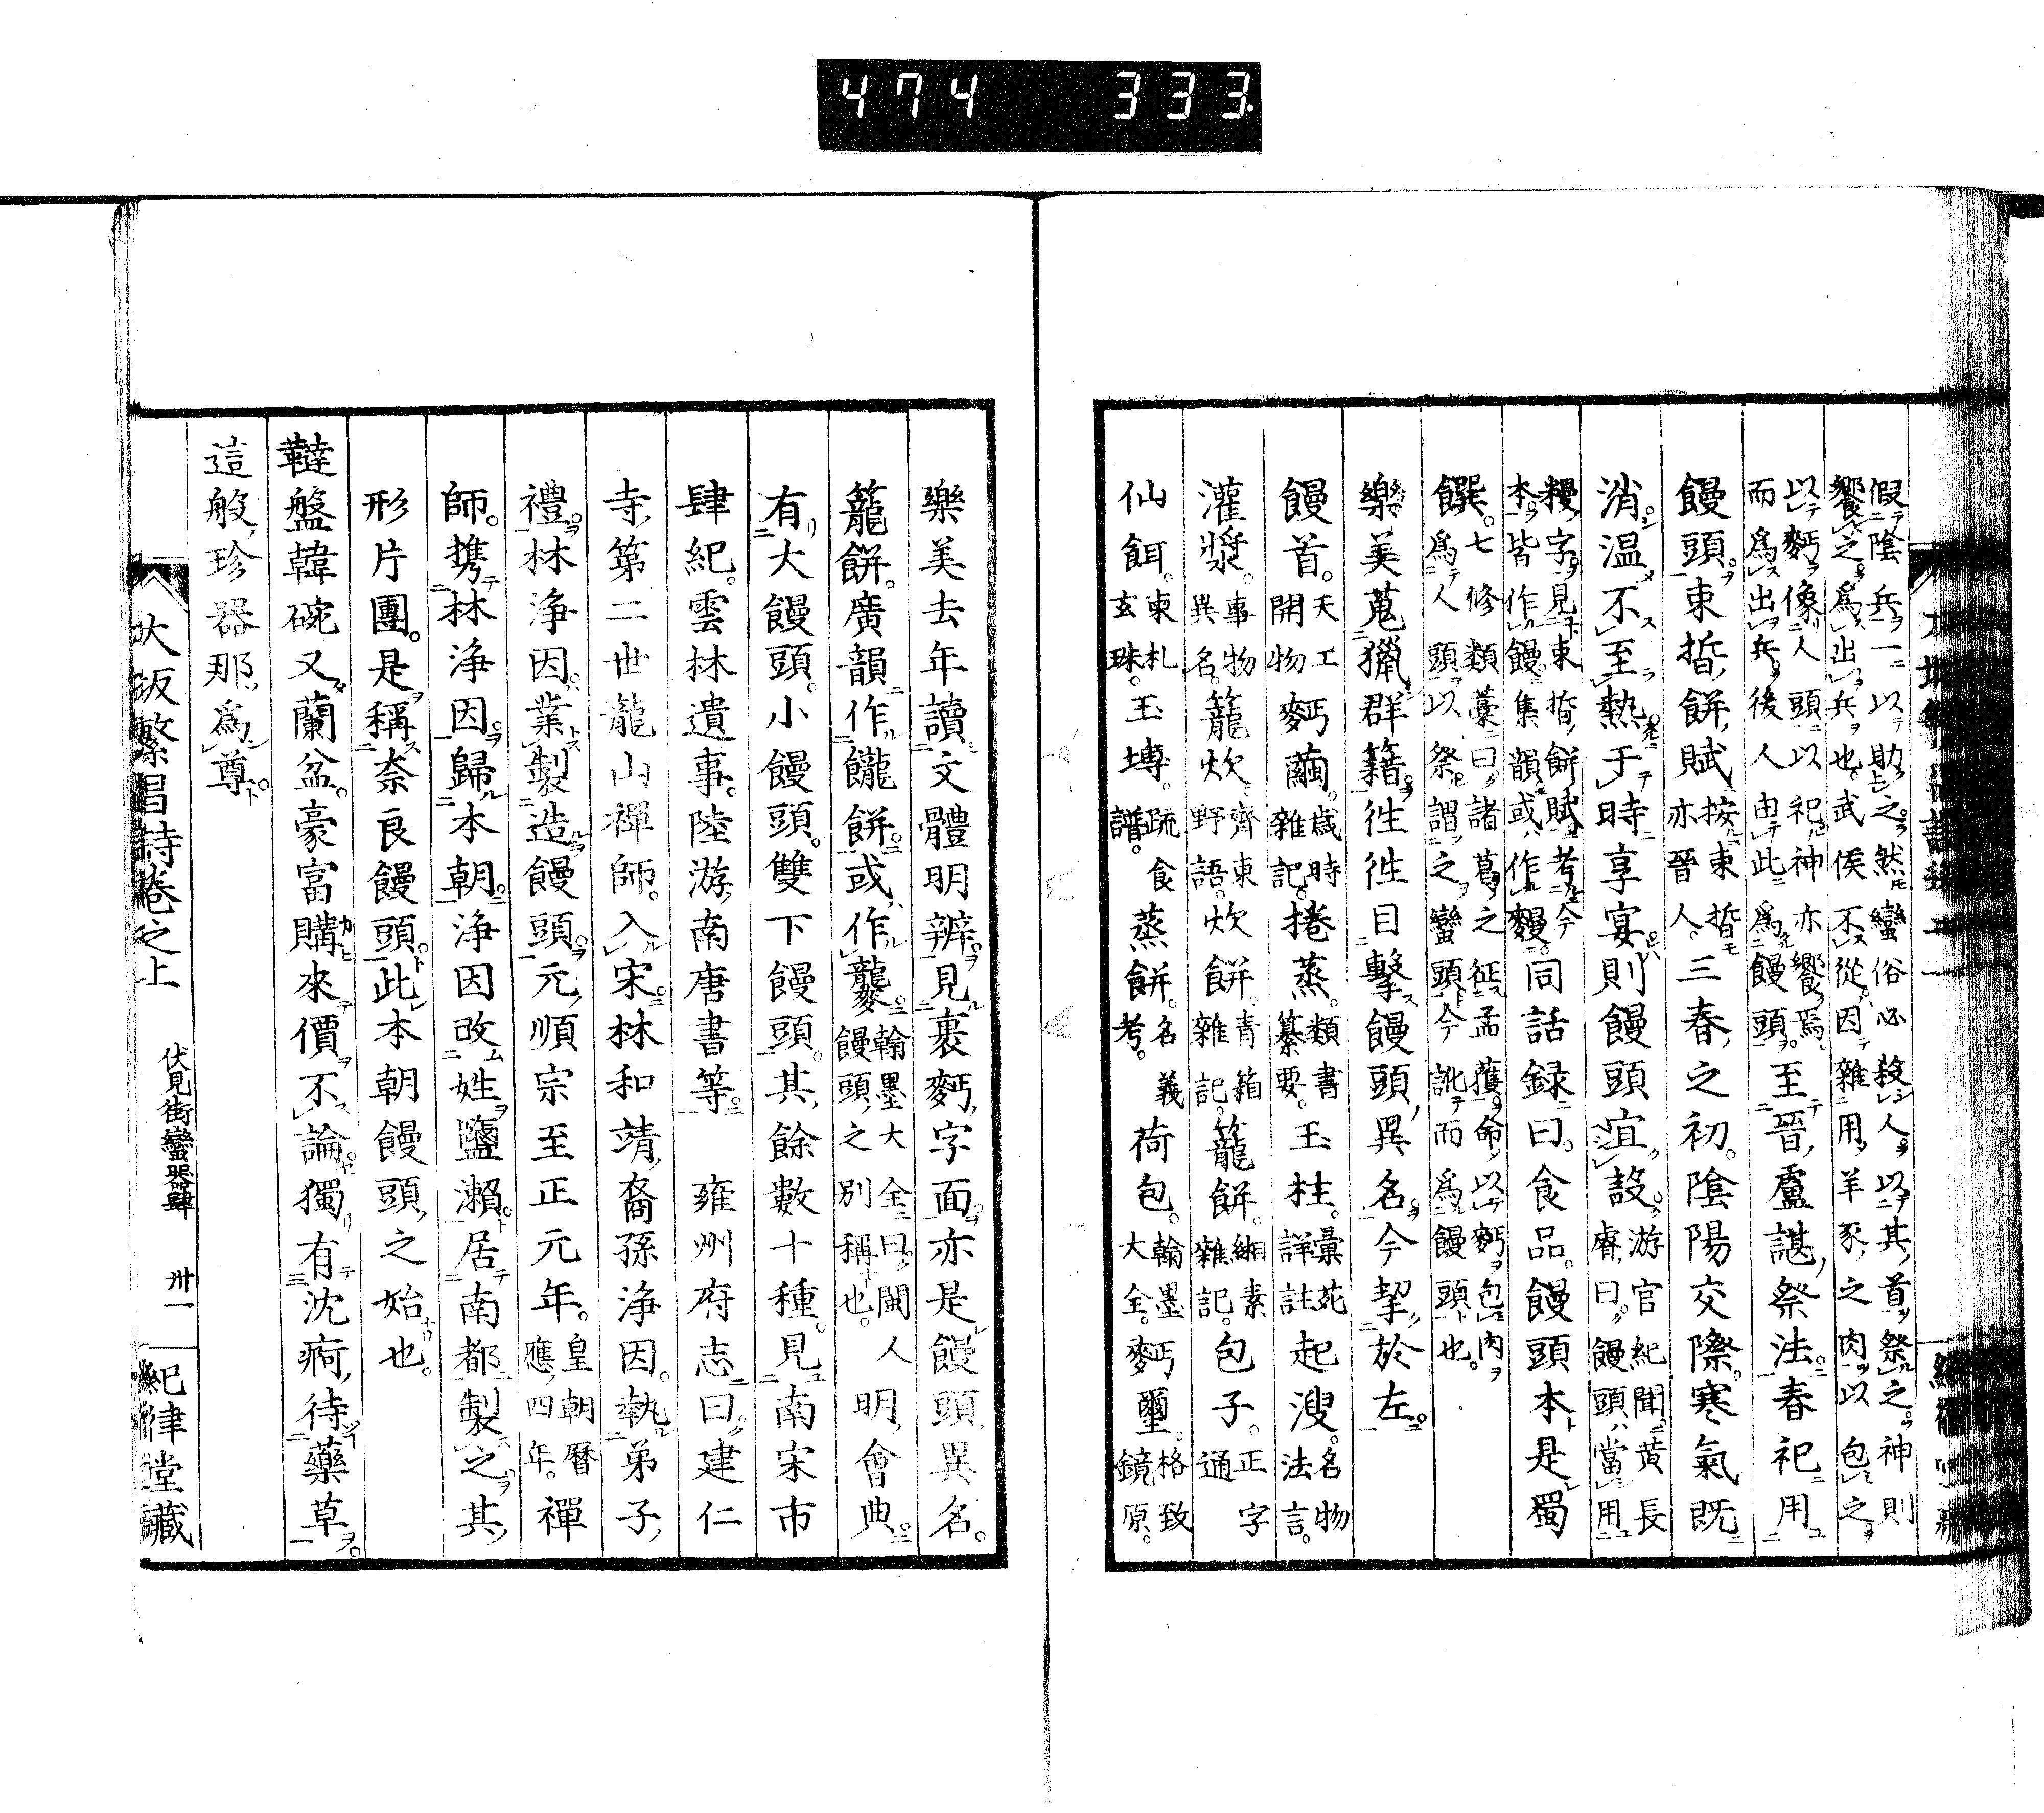 474 333
假陰兵一以助之。然蠻俗必殺人。以其首祭之。神則
饗之。爲出兵也。武侯不從。因雜用羊豕之肉以包之
以麪像人頭以祀神亦饗焉
而爲出兵後人由此爲饅頭。至晉盧諶祭法。春祀用
饅頭。束晳餅賦按束晳亦晉人。三春之初。陰陽交際。寒氣既
消。温不至熱。于時享宴則饅頭宜設。游官紀聞黄長睿曰。饅頭當用
糆字。見束晳餅賦。考今
本。皆作饅。集韻或作䊡。同話録曰。食品。饅頭本是蜀
饌。七修類藁曰。諸葛之征孟獲。命以麪包肉
爲人頭以祭。謂之蠻頭。今訛而爲饅頭也。
樂美蒐獵群籍。徃徃目擊饅頭異名。今挈於左。
饅首。天工開物麪繭。歳時雜記。捲蒸。類書纂要。玉柱。彙苑詳註起溲。名物法言。
灌漿。事物異名。籠炊齊東野語。炊餅。青箱雜記。籠餅。緗素雜記。包子。正字通
仙餌。東札玄珠。玉塼。疏食譜。蒸餅。名義考。荷包。翰墨大全。麪璽。格致鏡原。
樂美去年讀文體明辨。見裹麪字面。亦是饅頭異名。
籠餅。廣韻作䉪餅。或作䵼翰墨大全曰。閩人饅頭之別稱也。明會典。
有大饅頭。小饅頭。雙下饅頭。其餘數十種。見南宋市
肆紀。雲林遺事。陸游南唐書等。 雍州府志曰。建仁
寺第二世龍山禪師。入宋。林和靖裔孫浄因。執弟子
禮。林浄因業製造饅頭。元順宗至正元年。皇朝暦應四年。禪
師。携林浄因歸本朝。浄因改姓鹽瀬。居南都製之。其
形片團。是稱奈良饅頭。此本朝饅頭之始也。
韃盤韓碗又蘭盆。豪富購來價不論。獨有沈痾待藥草。
這般珍器那爲尊。
大坂繁昌詩卷之上 伏見街蠻器肆 卅一 紀律堂藏